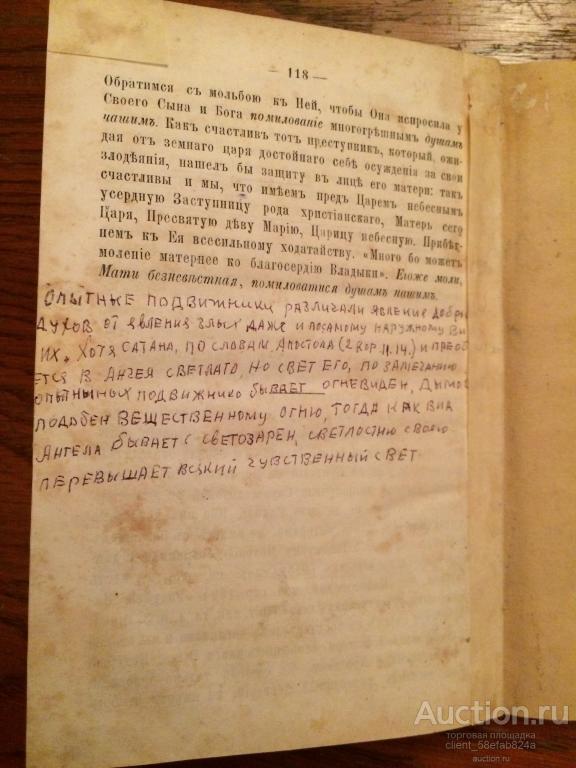 — 118 —
Обратимся съ мольбою къ Ней, чтобы Она испросила у
Своего Сына и Бога помилованіе многогрѣшнымъ душамъ
нашимъ. Какъ счастливъ тотъ преступникъ, который, ожи-
дая отъ земнаго царя достойнаго себѣ осужденія за свои
злодѣянія, нашелъ бы защиту въ лицѣ его матери: такъ
счастливы и мы, что имѣемъ предъ Царемъ небеснымъ
усердную Заступницу рода христіанскаго, Матерь сего
Царя, Пресвятую дѣву Марію, Царицу небесную. Прибѣг-
немъ къ Ея всесильному ходатайству. «Много бо можетъ
моленіе матернее ко благосердію Владыки». Еюже моли,
Мати безневѣстная, помиловатися душамъ нашимъ.
ОПЫТНЫЕ ПОДВИЖНИКИ РАЗЛИЧАЛИ ЯВЛЕНИЕ ДОБРЫ
ДУХОВ ОТ ЯВЛЕНИЯ ЗЛЫХ ДАЖЕ И ПОСАМОМУ НАРУЖНОМУ ВИ
ИХ. ХОТЯ САТАНА, ПО СЛОВАМ АПОСТОЛА (2 КОР. 11. 14.) И ПРЕОБ
ЕТСЯ В АНГЕЛА СВЕТЛАГО, НО СВЕТ ЕГО, ПО ЗАМЕЧАНИЮ
ОПЫТНЫНЫХ ПОДВИЖНИКО БЫВАЕТ ОГНЕВИДЕН, ДЫМОВ
ПОДОБЕН ВЕЩЕСТВЕННОМУ ОГНЮ, ТОГДА КАК ВИД
АНГЕЛА БЫВАЕТ СВЕТОЗАРЕН, СВЕТЛОСТИЮ СВОЕЮ
ПЕРЕВЫШАЕТ ВСЯКИЙ ЧУВСТВЕННЫЙ СВЕТ
Auction.ru
торговая площадка
client_58efab824a
auction.ru